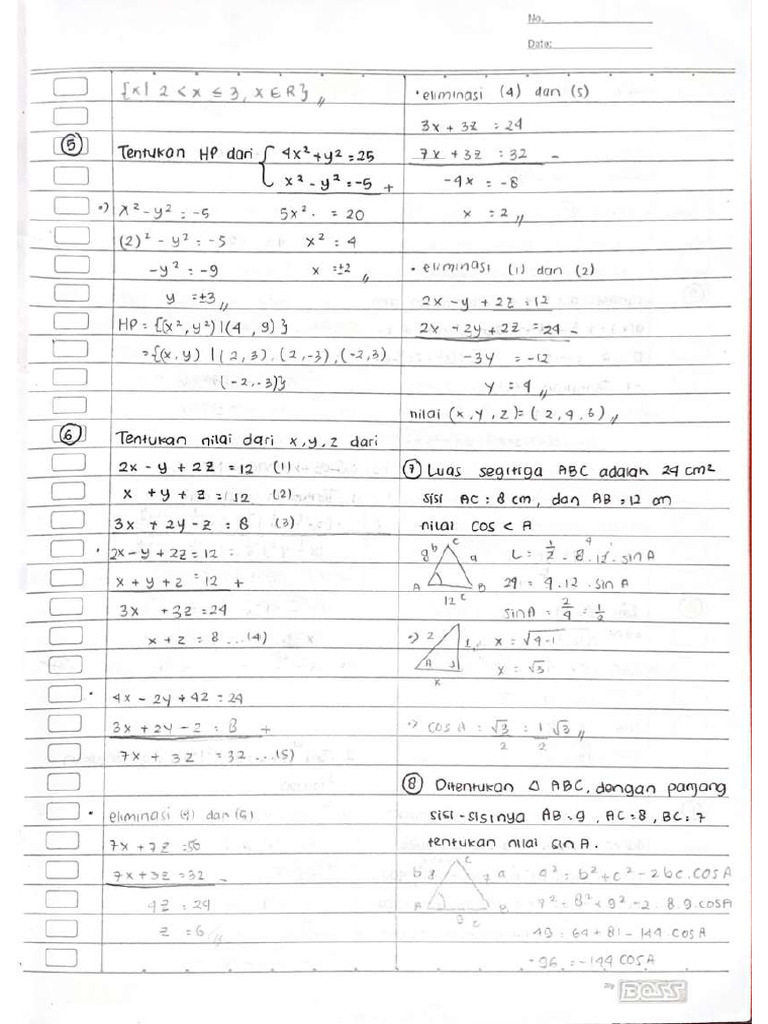 No.
Date:
{x| 2 < x ≤ 3, x ∈ R} //
⑤ Tentukan HP dari { 4x² + y² = 25
x² - y² = -5 +
•) x² - y² = -5    5x² = 20
(2)² - y² = -5    x² = 4
-y² = -9    x = ±2 //
y = ±3 //
HP = {(x², y²) | (4, 9)}
= {(x, y) | (2, 3), (2, -3), (-2, 3)
(-2, -3)}
⑥ Tentukan nilai dari x, y, z dari
2x - y + 2z = 12 (1)
x + y + z = 12 (2)
3x + 2y - z = 8 (3)
• 2x - y + 2z = 12
x + y + z = 12 +
3x + 3z = 24
x + z = 8 ...(4)
• 4x - 2y + 4z = 24
3x + 2y - z = 8 +
7x + 3z = 32 ...(5)
• eliminasi (4) dan (5)
7x + 7z = 56
7x + 3z = 32 -
4z = 24
z = 6 //
• eliminasi (4) dan (5)
3x + 3z = 24
7x + 3z = 32 -
-4x = -8
x = 2 //
• eliminasi (1) dan (2)
2x - y + 2z = 12
2x + 2y + 2z = 24 -
-3y = -12
y = 4 //
nilai (x, y, z) = (2, 4, 6) //
⑦ Luas segitiga ABC adalah 24 cm²
sisi AC = 8 cm, dan AB = 12 cm
nilai cos < A
8 b C a A B 12 c
L = 1/2 . 8 . 12 . sin A
24 = 4 . 12 . sin A
sin A = 2/4 = 1/2
•) 2 1 A x    x = √4-1
x = √3
•) cos A = √3/2 = 1/2 √3 //
⑧ Ditentukan △ ABC, dengan panjang
sisi-sisinya AB = 9, AC = 8, BC = 7
tentukan nilai sin A.
b 8 C 7 a A B 9 c
a² = b² + c² - 2bc . cos A
7² = 8² + 9² - 2 . 8 . 9 cos A
49 = 64 + 81 - 144 cos A
-96 = -144 cos A
BOSS